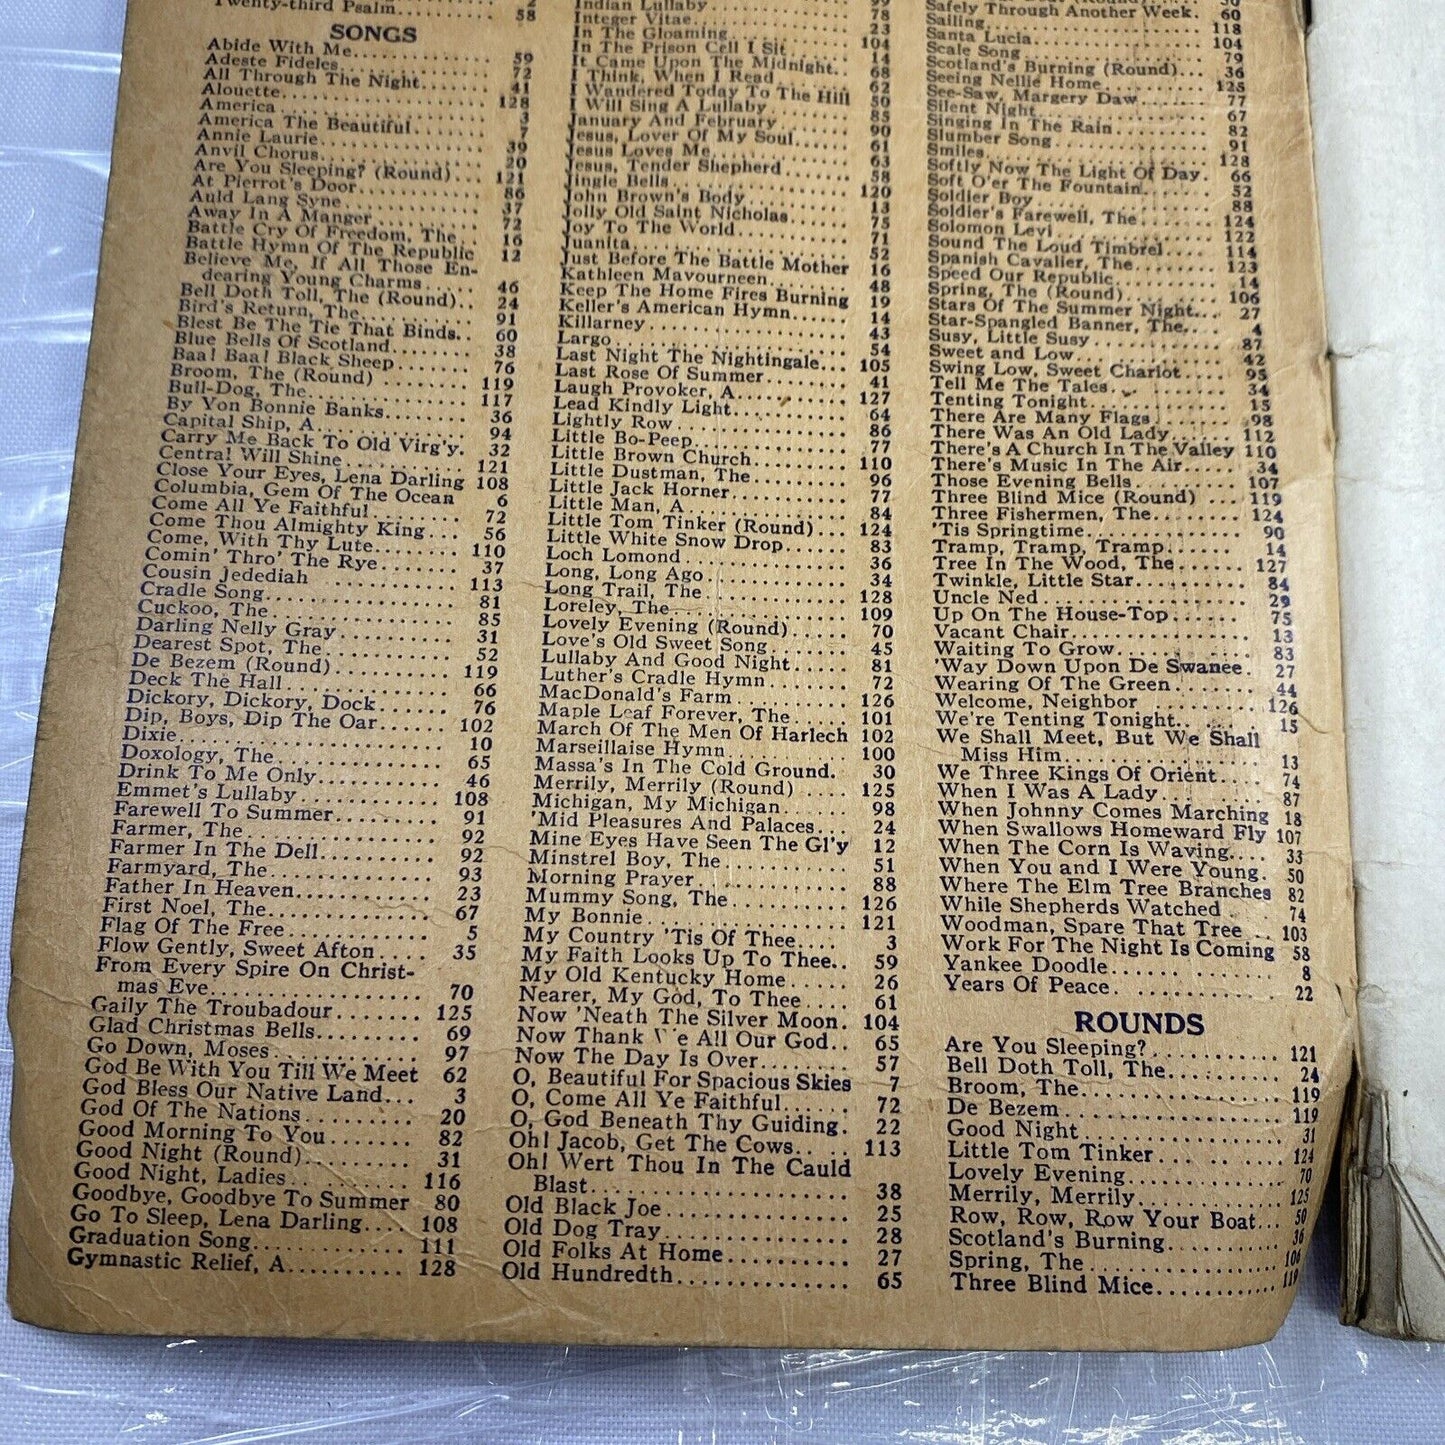 Twenty-third Psalm.... 58
SONGS
Abide With Me.............. 59
Adeste Fideles............. 72
All Through The Night...... 41
Alouette................... 128
America.................... 3
America The Beautiful...... 7
Annie Laurie............... 39
Anvil Chorus............... 20
Are You Sleeping? (Round).. 121
At Pierrot's Door.......... 86
Auld Lang Syne............. 37
Away In A Manger........... 72
Battle Cry Of Freedom, The.. 16
Battle Hymn Of The Republic 12
Believe Me, If All Those En-
dearing Young Charms..... 46
Bell Doth Toll, The (Round).. 24
Bird's Return, The......... 91
Blest Be The Tie That Binds.. 60
Blue Bells Of Scotland..... 38
Baa! Baa! Black Sheep...... 76
Broom, The (Round)......... 119
Bull-Dog, The.............. 117
By Yon Bonnie Banks........ 36
Capital Ship, A............ 94
Carry Me Back To Old Virg'y. 32
Central Will Shine......... 121
Close Your Eyes, Lena Darling 108
Columbia, Gem Of The Ocean 6
Come All Ye Faithful....... 72
Come Thou Almighty King... 56
Come, With Thy Lute........ 110
Comin' Thro' The Rye....... 37
Cousin Jedediah............ 113
Cradle Song................ 81
Cuckoo, The................ 85
Darling Nelly Gray......... 31
Dearest Spot, The.......... 52
De Bezem (Round)........... 119
Deck The Hall.............. 66
Dickory, Dickory, Dock..... 76
Dip, Boys, Dip The Oar..... 102
Dixie...................... 10
Doxology, The.............. 65
Drink To Me Only........... 46
Emmet's Lullaby............ 108
Farewell To Summer......... 91
Farmer, The................ 92
Farmer In The Dell......... 92
Farmyard, The.............. 93
Father In Heaven........... 23
First Noel, The............ 67
Flag Of The Free........... 5
Flow Gently, Sweet Afton... 35
From Every Spire On Christ-
mas Eve.................. 70
Gaily The Troubadour....... 125
Glad Christmas Bells....... 69
Go Down, Moses............. 97
God Be With You Till We Meet 62
God Bless Our Native Land... 3
God Of The Nations......... 20
Good Morning To You........ 82
Good Night (Round)......... 31
Good Night, Ladies......... 116
Goodbye, Goodbye To Summer 80
Go To Sleep, Lena Darling.... 108
Graduation Song............ 111
Gymnastic Relief, A.......... 128
Indian Lullaby............. 78
Integer Vitae.............. 23
In The Gloaming............ 104
In The Prison Cell I Sit... 14
It Came Upon The Midnight.. 68
I Think, When I Read....... 62
I Wandered Today To The Hill 50
I Will Sing A Lullaby...... 85
January And February....... 90
Jesus, Lover Of My Soul.... 61
Jesus Loves Me............. 63
Jesus, Tender Shepherd..... 58
Jingle Bells............... 120
John Brown's Body.......... 13
Jolly Old Saint Nicholas... 75
Joy To The World........... 71
Juanita.................... 52
Just Before The Battle Mother 16
Kathleen Mavourneen........ 48
Keep The Home Fires Burning 19
Keller's American Hymn..... 14
Killarney.................. 43
Largo...................... 54
Last Night The Nightingale... 105
Last Rose Of Summer........ 41
Laugh Provoker, A.......... 127
Lead Kindly Light.......... 64
Lightly Row................ 86
Little Bo-Peep............. 77
Little Brown Church........ 110
Little Dustman, The........ 96
Little Jack Horner......... 77
Little Man, A.............. 84
Little Tom Tinker (Round)... 124
Little White Snow Drop..... 83
Loch Lomond................ 36
Long, Long Ago............. 34
Long Trail, The............ 128
Loreley, The............... 109
Lovely Evening (Round)..... 70
Love's Old Sweet Song...... 45
Lullaby And Good Night..... 81
Luther's Cradle Hymn....... 72
MacDonald's Farm........... 126
Maple Leaf Forever, The..... 101
March Of The Men Of Harlech 102
Marseillaise Hymn.......... 100
Massa's In The Cold Ground. 30
Merrily, Merrily (Round).... 125
Michigan, My Michigan...... 98
'Mid Pleasures And Palaces... 24
Mine Eyes Have Seen The Gl'y 12
Minstrel Boy, The.......... 51
Morning Prayer............. 88
Mummy Song, The............ 126
My Bonnie.................. 121
My Country 'Tis Of Thee.... 3
My Faith Looks Up To Thee.. 59
My Old Kentucky Home....... 26
Nearer, My God, To Thee.... 61
Now 'Neath The Silver Moon. 104
Now Thank We All Our God.. 65
Now The Day Is Over........ 57
O, Beautiful For Spacious Skies 7
O, Come All Ye Faithful..... 72
O, God Beneath Thy Guiding. 22
Oh! Jacob, Get The Cows.... 113
Oh! Wert Thou In The Cauld
Blast.................... 38
Old Black Joe.............. 25
Old Dog Tray............... 28
Old Folks At Home.......... 27
Old Hundredth.............. 65
Safely Through Another Week. 60
Sailing.................... 118
Santa Lucia................ 104
Scale Song................. 79
Scotland's Burning (Round)... 36
Seeing Nellie Home......... 125
See-Saw, Margery Daw....... 77
Silent Night............... 67
Singing In The Rain........ 82
Slumber Song............... 91
Smiles..................... 128
Softly Now The Light Of Day. 66
Soft O'er The Fountain..... 52
Soldier Boy................ 88
Soldier's Farewell, The.... 124
Solomon Levi............... 122
Sound The Loud Timbrel..... 114
Spanish Cavalier, The...... 123
Speed Our Republic......... 14
Spring, The (Round)........ 106
Stars Of The Summer Night... 27
Star-Spangled Banner, The.... 4
Susy, Little Susy.......... 87
Sweet and Low.............. 42
Swing Low, Sweet Chariot... 95
Tell Me The Tales.......... 34
Tenting Tonight............ 15
There Are Many Flags....... 98
There Was An Old Lady...... 112
There's A Church In The Valley 110
There's Music In The Air.... 34
Those Evening Bells........ 107
Three Blind Mice (Round) ... 119
Three Fishermen, The....... 124
'Tis Springtime............ 90
Tramp, Tramp, Tramp........ 14
Tree In The Wood, The...... 127
Twinkle, Little Star....... 84
Uncle Ned.................. 29
Up On The House-Top........ 75
Vacant Chair............... 13
Waiting To Grow............ 83
'Way Down Upon De Swanee. 27
Wearing Of The Green....... 44
Welcome, Neighbor.......... 126
We're Tenting Tonight...... 15
We Shall Meet, But We Shall
Miss Him................. 13
We Three Kings Of Orient.... 74
When I Was A Lady.......... 87
When Johnny Comes Marching 18
When Swallows Homeward Fly 107
When The Corn Is Waving.... 33
When You and I Were Young. 50
Where The Elm Tree Branches 82
While Shepherds Watched.... 74
Woodman, Spare That Tree .. 103
Work For The Night Is Coming 58
Yankee Doodle.............. 8
Years Of Peace............. 22
ROUNDS
Are You Sleeping?.......... 121
Bell Doth Toll, The........ 24
Broom, The................. 119
De Bezem................... 119
Good Night................. 31
Little Tom Tinker.......... 124
Lovely Evening............. 70
Merrily, Merrily........... 125
Row, Row, Row Your Boat... 50
Scotland's Burning......... 36
Spring, The................ 106
Three Blind Mice........... 119